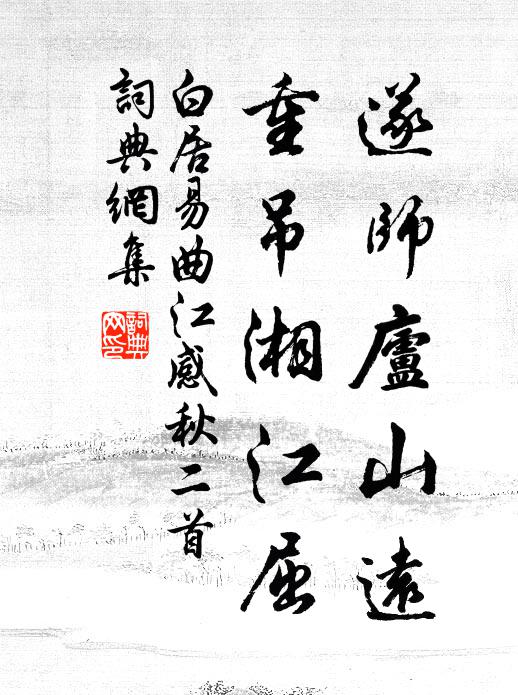 遂師廬山遠
重吊湘江屈
白居易曲江感秋二首
詞典網集
詞典
网印